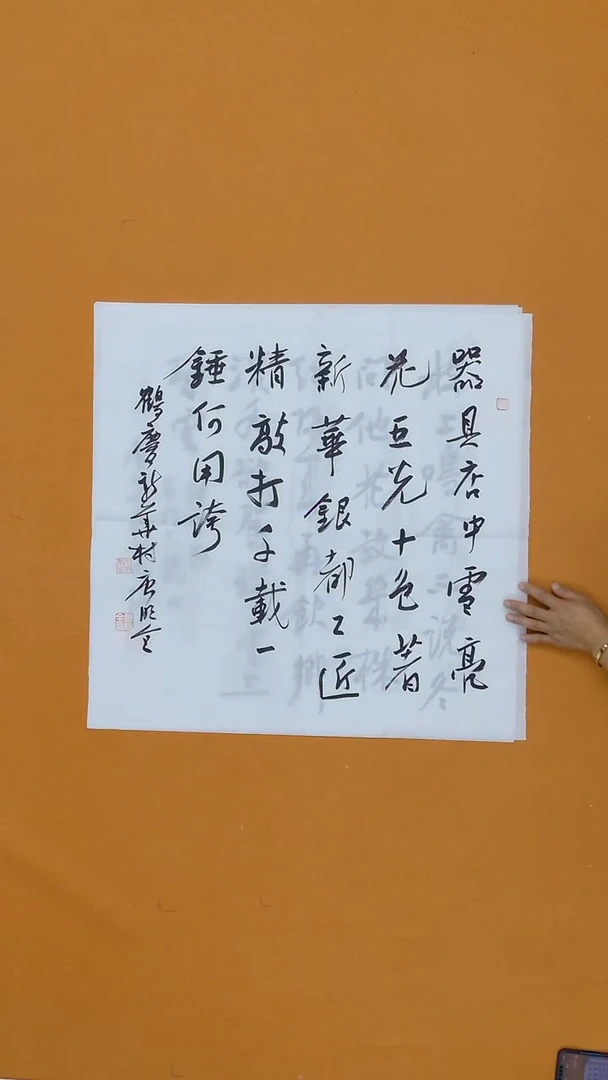 器具店中雪亮
花五光十色著
新華銀都工匠
精敲打千載一
錘何用誇
鶴慶新華村